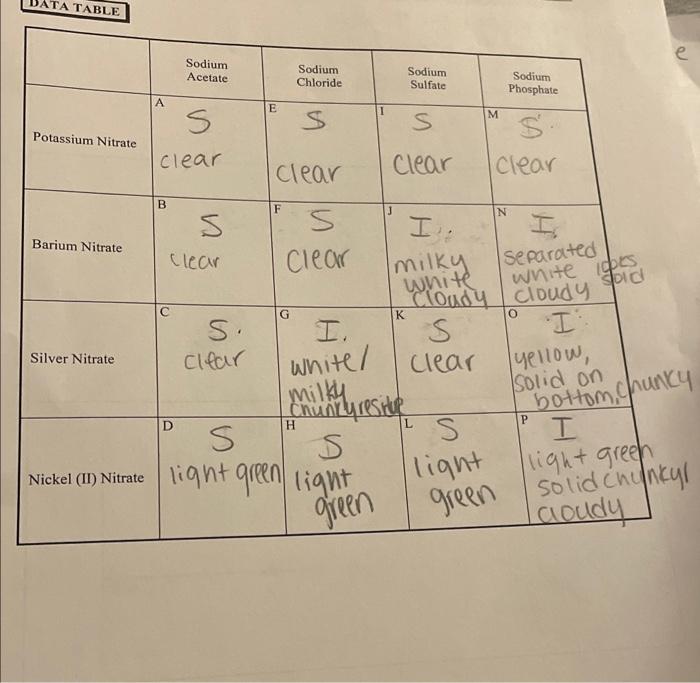 DATA TABLE
e
Sodium Acetate
Sodium Chloride
Sodium Sulfate
Sodium Phosphate
Potassium Nitrate
A
S
clear
E
S
clear
I
S
clear
M
S
clear
Barium Nitrate
B
S
clear
F
S
clear
J
I
milky
white
cloudy
N
I
separated
white
cloudy
Silver Nitrate
C
S.
clear
G
I.
white/
milky
chunky residue
K
S
clear
O
I
yellow,
solid on
bottom, chunky
Nickel (II) Nitrate
D
S
light green
H
S
light
green
L
S
light
green
P
I
light green
solid chunky/
cloudy